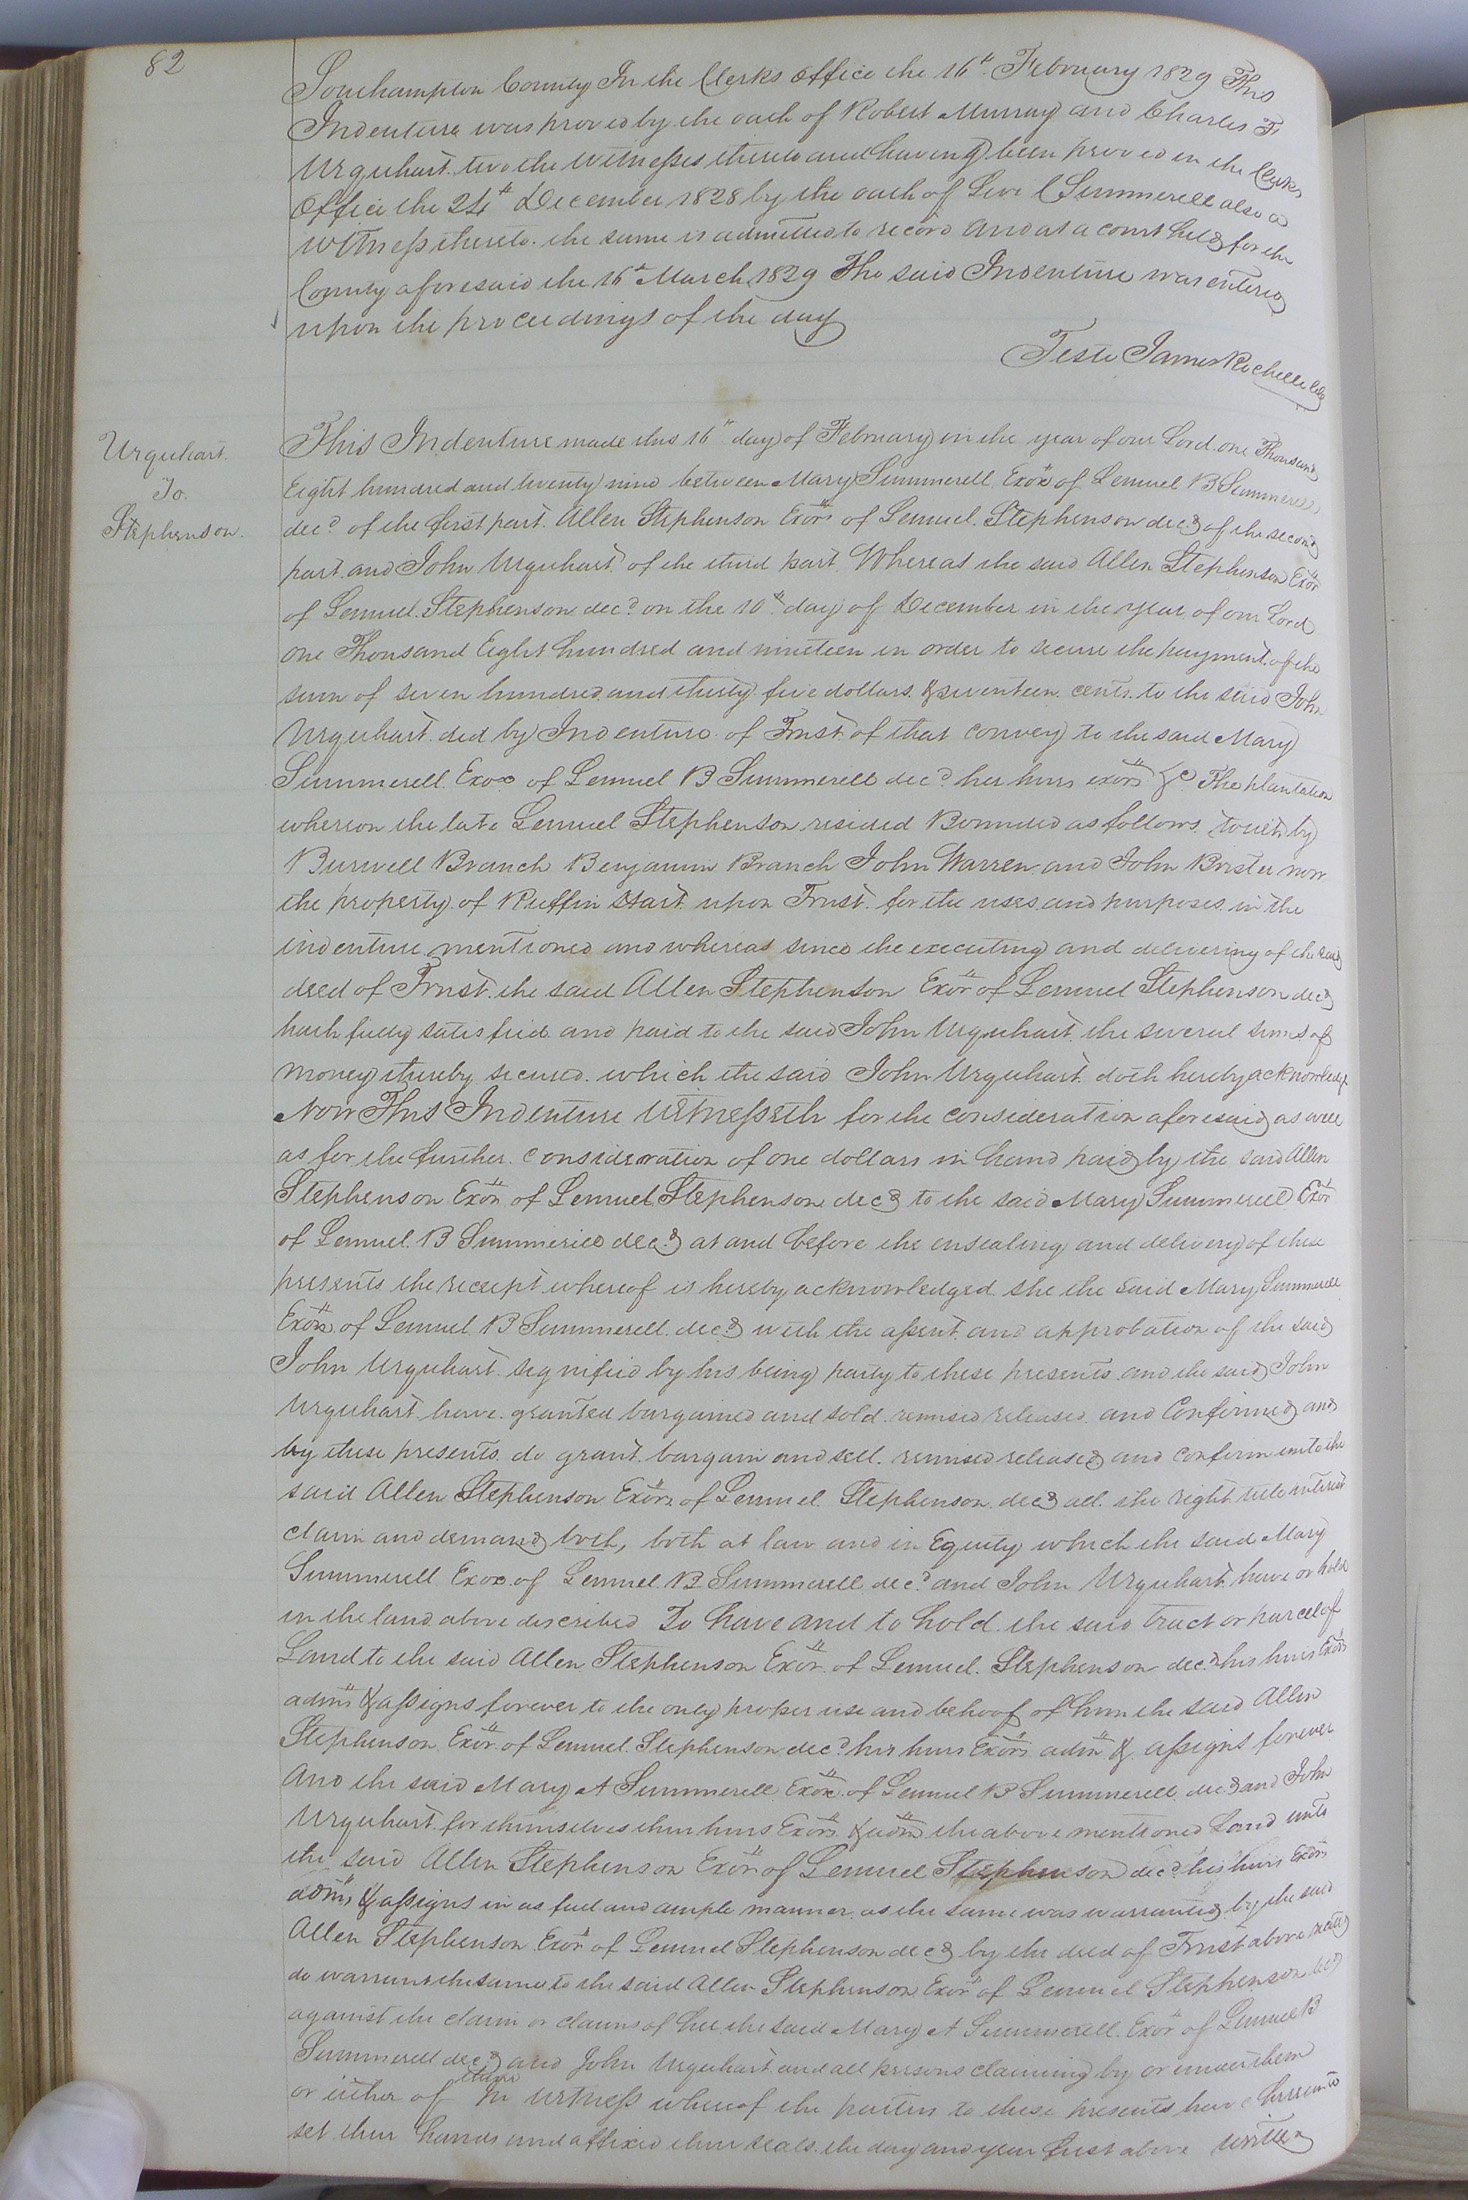 82
Southampton County In the Clerks office the 16th February 1829 This
Indenture was proved by the oath of Robert Murray and Charles F
Urquhart two the witnesses thereto and having been proved in the Clerks
Office the 24th December 1828 by the oath of Levi C Summerell also a
witness thereto the same is admitted to record And at a court held for the
County aforesaid the 16th March 1829 The said Indenture was entered
upon the proceedings of the day
Teste James Rochelle Clk
Urquhart
To
Stephenson
This Indenture made this 16th day of February in the year of our Lord one Thousand
Eight hundred and twenty nine between Mary Summerell Exox of Lemuel B Summerell
decd of the first part Allen Stephenson Exor of Lemuel Stephenson decd of the second
part and John Urquhart of the third part Whereas the said Allen Stephenson Exor
of Lemuel Stephenson decd on the 10th day of December in the year of our Lord
one Thousand Eight hundred and nineteen in order to secure the payment of the
sum of seven hundred and thirty five dollars & seventeen cents to the said John
Urquhart did by Indenture of Trust of that convey to the said Mary
Summerell Exox of Lemuel B Summerell decd her heirs exors &c The plantation
whereon the late Lemuel Stephenson resided Bounded as follows towit by
Burwell Branch Benjamin Branch John Warren and John Brister now
the property of Ruffin Hart upon Trust for the uses and purposes in the
indenture mentioned and whereas since the executing and delivering of the said
deed of Trust the said Allen Stephenson Exor of Lemuel Stephenson decd
hath fully satisfied and paid to the said John Urquhart the several sums of
money thereby secured which the said John Urquhart doth hereby acknowledge
Now This Indenture Witnesseth for the consideration aforesaid as well
as for the further consideration of one dollars in hand paid by the said Allen
Stephenson Exor of Lemuel Stephenson decd to the said Mary Summerell Exor
of Lemuel B Summerell decd at and before the ensealing and delivery of these
presents the receipt whereof is hereby acknowledged she the said Mary Summerell
Exox of Lemuel B Summerell decd with the assent and approbation of the said
John Urquhart signified by his being party to these presents and the said John
Urquhart have granted bargained and sold remised released and Confirmed and
by these presents do grant bargain and sell remised released and confirm unto the
said Allen Stephenson Exor of Lemuel Stephenson decd all the right title interest
claim and demand both, both at law and in Equity which the said Mary
Summerell Exox of Lemuel B Summerell decd and John Urquhart have or hold
in the land above described To have and to hold the said tract or parcel of
Land to the said Allen Stephenson Exor of Lemuel Stephenson decd his heirs Exors
admrs & assigns forever to the only proper use and behoof of him the said Allen
Stephenson Exor of Lemuel Stephenson decd his heirs Exors admr & assigns forever
And the said Mary A Summerell Exox of Lemuel B Summerell decd and John
Urquhart for themselves their heirs Exors & admr the above mentioned Land unto
the said Allen Stephenson Exor of Lemuel Stephenson decd his heirs Exors
admrs & assigns in as full and ample manner as the same was warranted by the said
Allen Stephenson Exor of Lemuel Stephenson decd by the deed of Trust above recited
do warrant the same to the said Allen Stephenson Exor of Lemuel Stephenson decd
against the claim or claims of her the said Mary A Summerell Exor of Lemuel B
Summerell decd and John Urquhart and all persons claiming by or under them
or either of them In witness whereof the parties to these presents have hereunto
set their hands and affixed their seals the day and year first above written